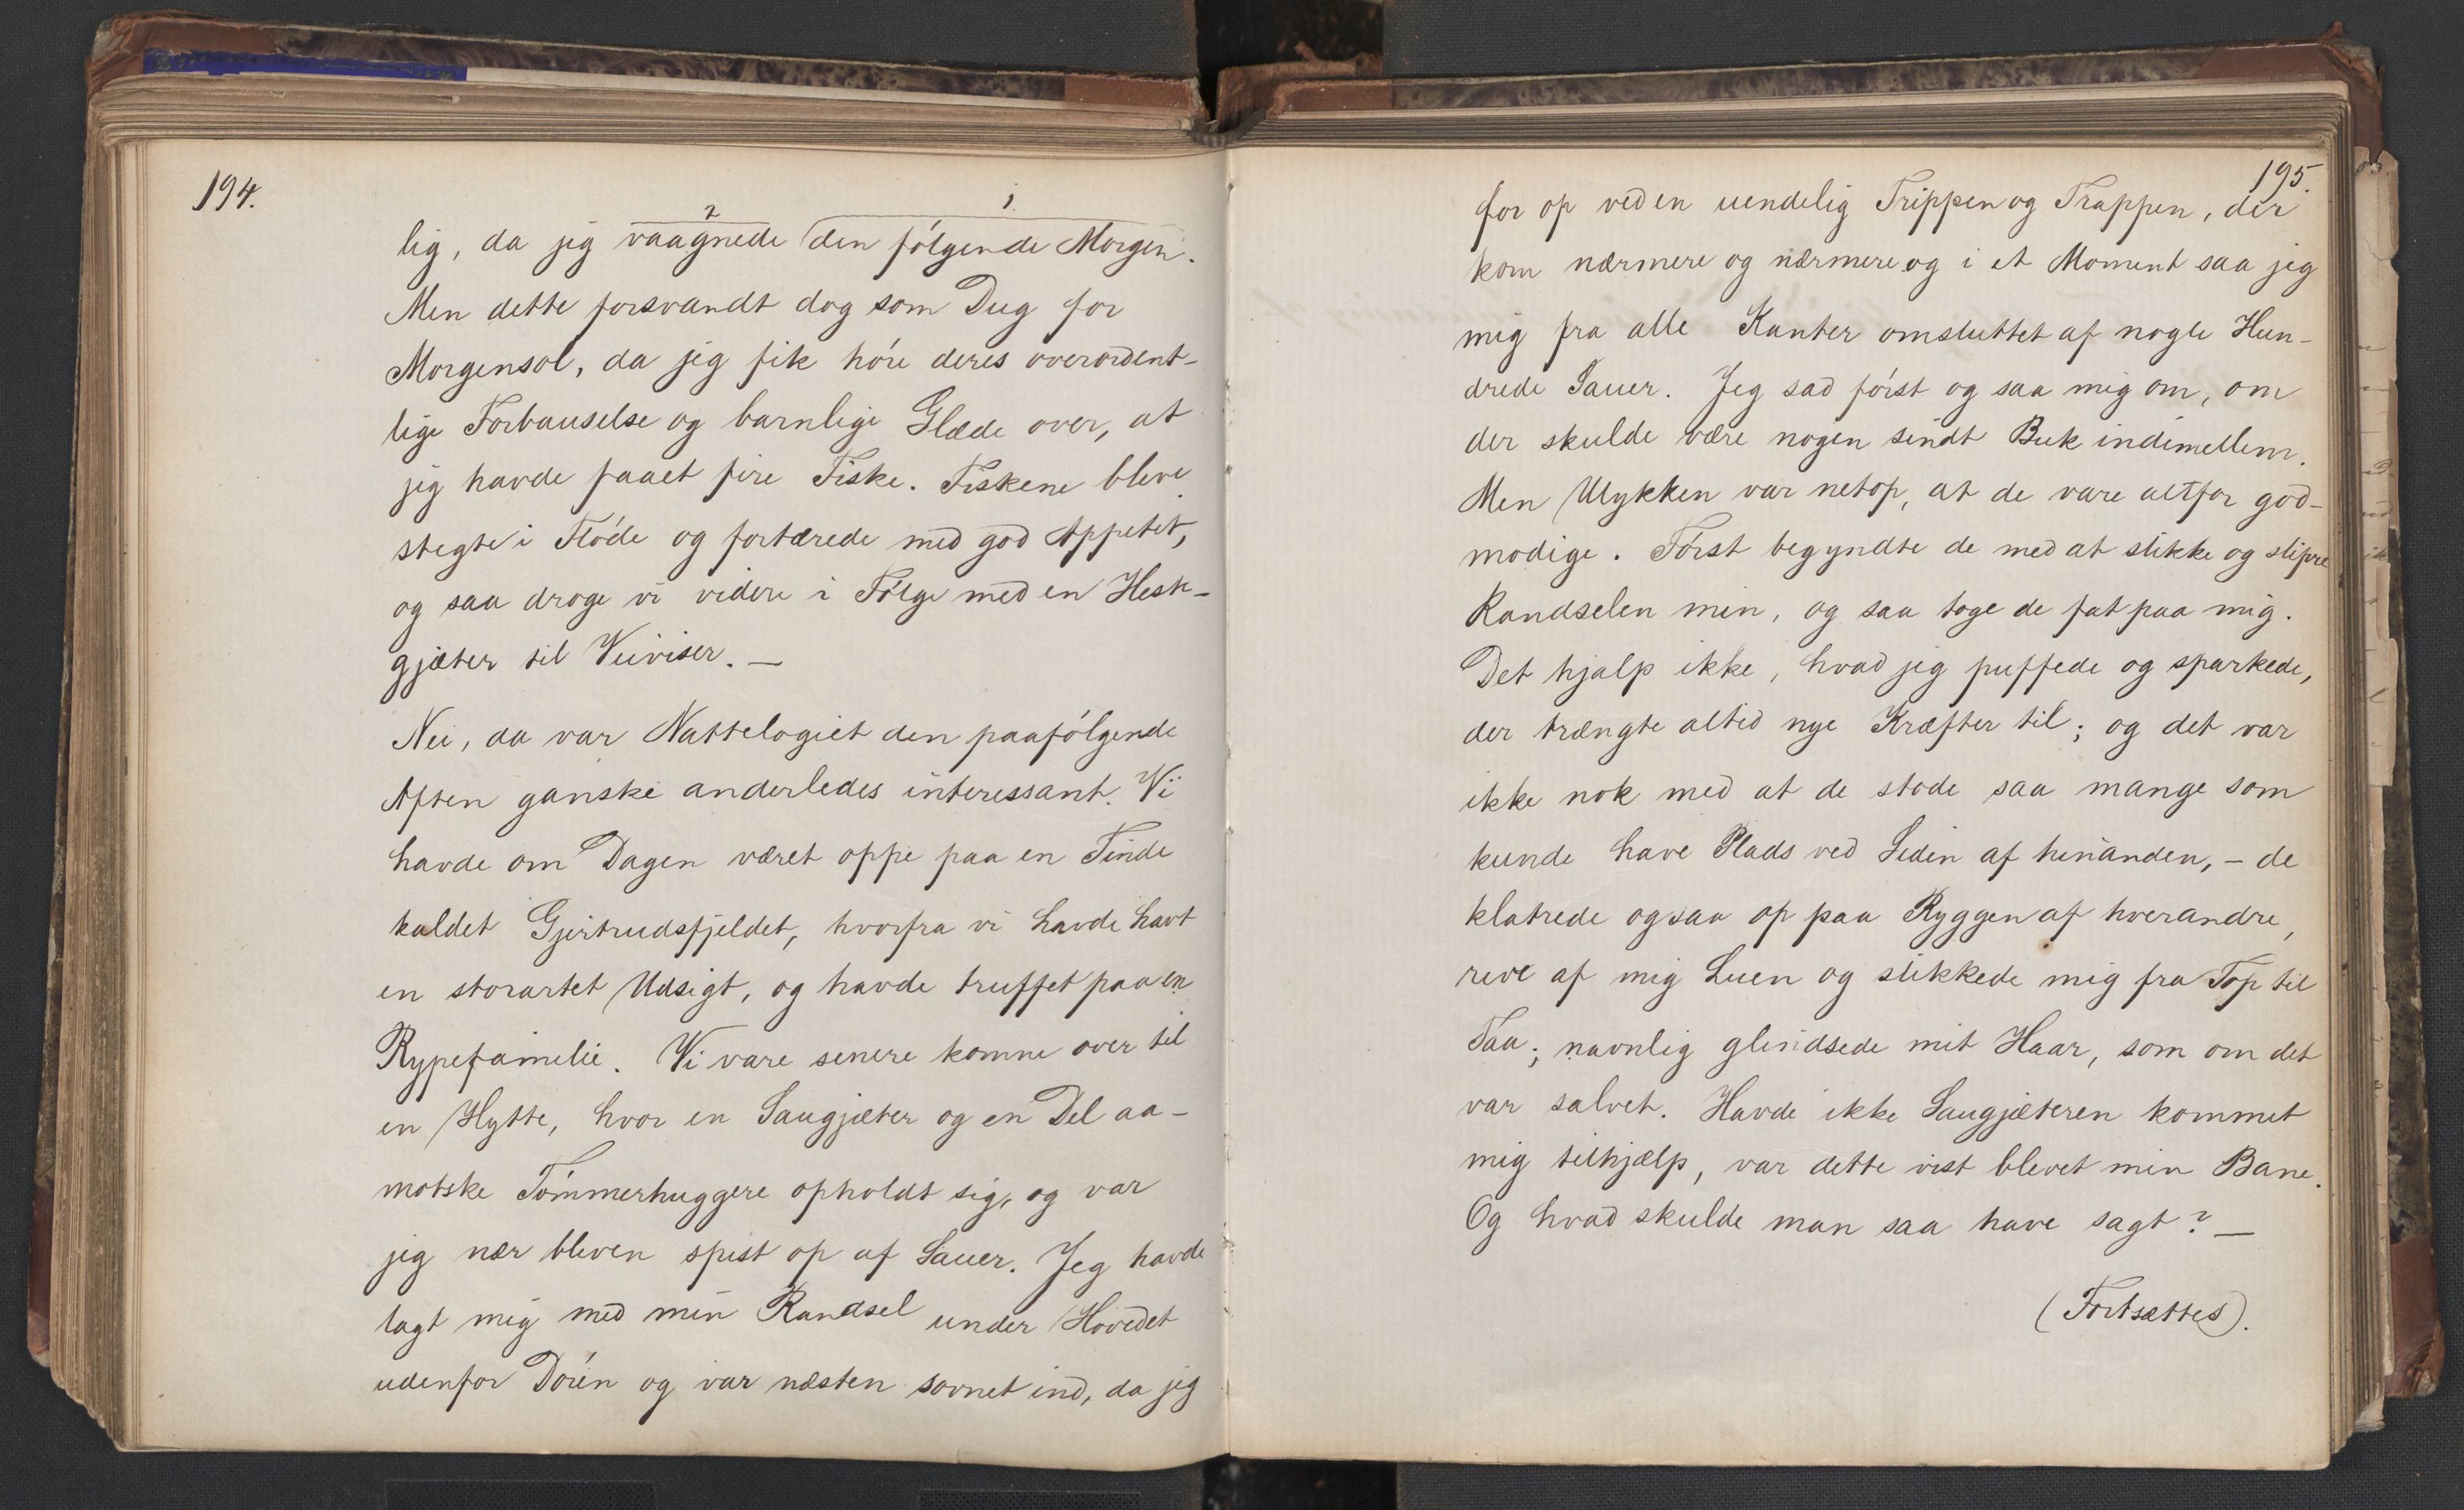 194.
2 1.
lig, da jeg vaagnede den følgende Morgen.
Men dette forsvandt dog som Dug for
Morgensol, da jeg fik høre deres overordent-
lige Forbauselse og barnlige Glæde over, at
jeg havde faaet fire Fiske. Fiskene bleve
stegte i Fløde og fortærede med god Appetit,
og saa droge vi videre i Følge med en Heste-
gjæter til Veiviser. —
Nei, da var Nattelogiet den paafølgende
Aften ganske anderledes interessant. Vi
havde om Dagen været oppe paa en Tinde
kaldet Gjertrudsfjeldet, hvorfra vi havde havt
en storartet Udsigt, og havde truffet paa en
Rypefamilie. Vi vare senere komne over til
en Hytte, hvor en Saugjæter og en Del aa-
motske Tømmerhuggere opholdt sig, og var
jeg nær bleven spist op af Sauer. Jeg havde
lagt mig med min Randsel under Hovedet
udenfor Døren og var næsten sovnet ind, da jeg
195.
for op ved en uendelig Trippen og Trappen, der
kom nærmere og nærmere og i et Moment saa jeg
mig fra alle Kanter omsluttet af nogle Hun-
drede Sauer. Jeg sad først og saa mig om, om
der skulde være nogen sindt Buk indimellem.
Men Ulykken var netop, at de vare altfor god-
modige. Først begyndte de med at slikke og slipre
Randselen min, og saa toge de fat paa mig.
Det hjalp ikke, hvad jeg puffede og sparkede,
der trængte altid nye Kræfter til; og det var
ikke nok med at de stode saa mange som
kunde have Plads ved Siden af hinanden, – de
klatrede ogsaa op paa Ryggen af hverandre,
reve af mig Luen og slikkede mig fra Top til
Taa; navnlig glindsede mit Haar, som om det
var salvet. Havde ikke Saugjæteren kommet
mig tilhjælp, var dette vist blevet min Bane.
Og hvad skulde man saa have sagt? —
(Fortsættes).